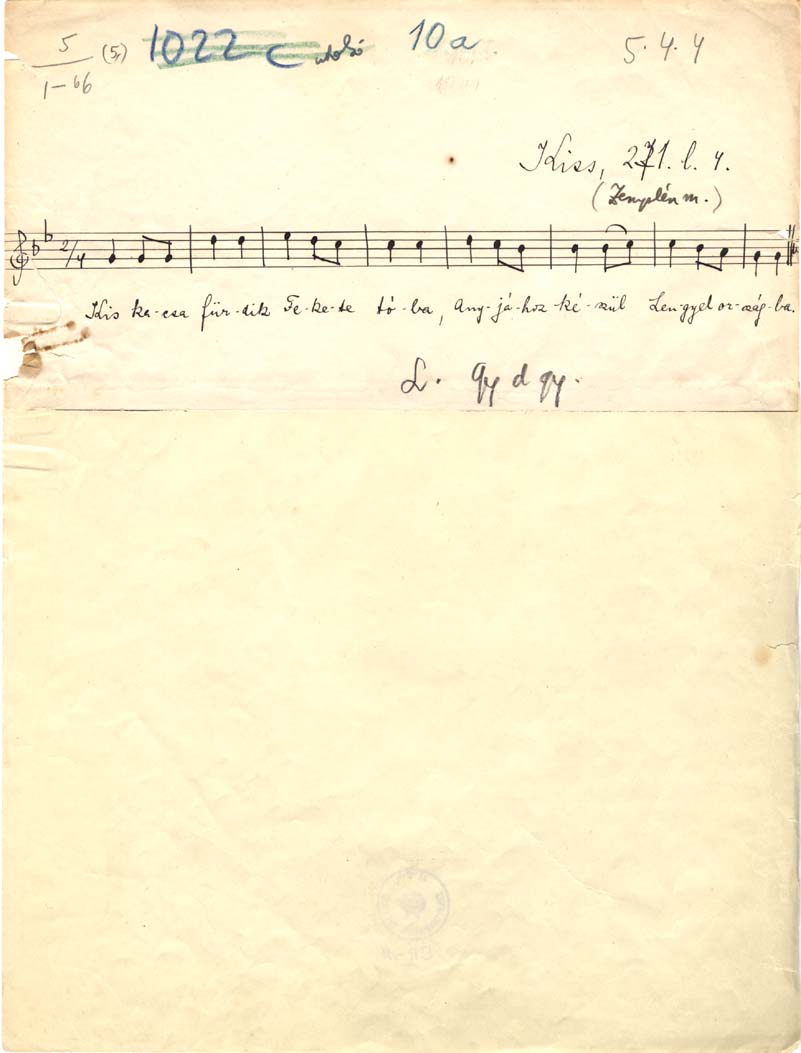 5 (5) 1022 C utolsó 10a. 5.4.4
1-66
Kiss, 271. l. 4.
(Zemplén m.)
2/4
Kis ka-csa für-dik Fe-ke-te tó-ba, Any-já-hoz ké-szül Len-gyel or-szág-ba.
L. gy d gy.